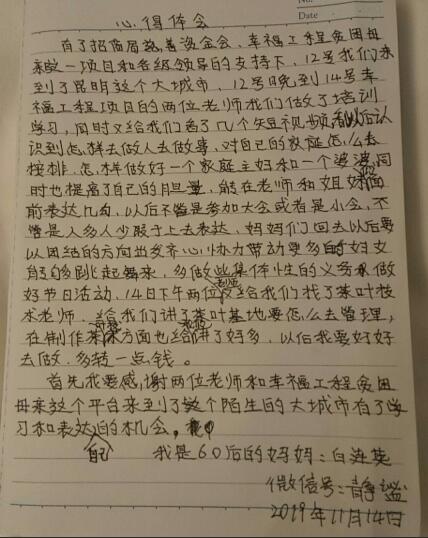 No.
Date
心得体会
有了招商局慈善资金会、幸福工程贫困母
亲这一项目和各级领导的支持下，12号我们来
到了昆明这个大城市，12号晚到14号幸
福工程项目的两位老师我们做了培训
学习，同时又给我们看了几个短视频看以后认
识到怎样去做人去做事，对自己的家庭怎么去
按排，怎样做好一个家庭主妇和一个婆婆，同
时也提高了自己的胆量，能在老师和姐妹们面
前表达几句，以后不管是参加大会或者是小会，不
管是人多人少敢于上去表达，妈妈们回去以后要
以团结的方向出发齐心协力带动更多的妇女
能够跳起舞来，多做些集体性的义务来做
好节日活动，14日下午两位老师又给我们找了茶叶技
术老师，给我们讲了茶叶基地要怎么去管理，
在制作茶方面也给讲了好多，以后我要好好
去做，多转一点钱。
首先我要感谢两位老师和幸福工程贫困
母亲这个平台来到了这个陌生的大城市有了学
习和表达自己的机会，
我是60后的妈妈：白连英
微信号：静谧
2019年11月14日